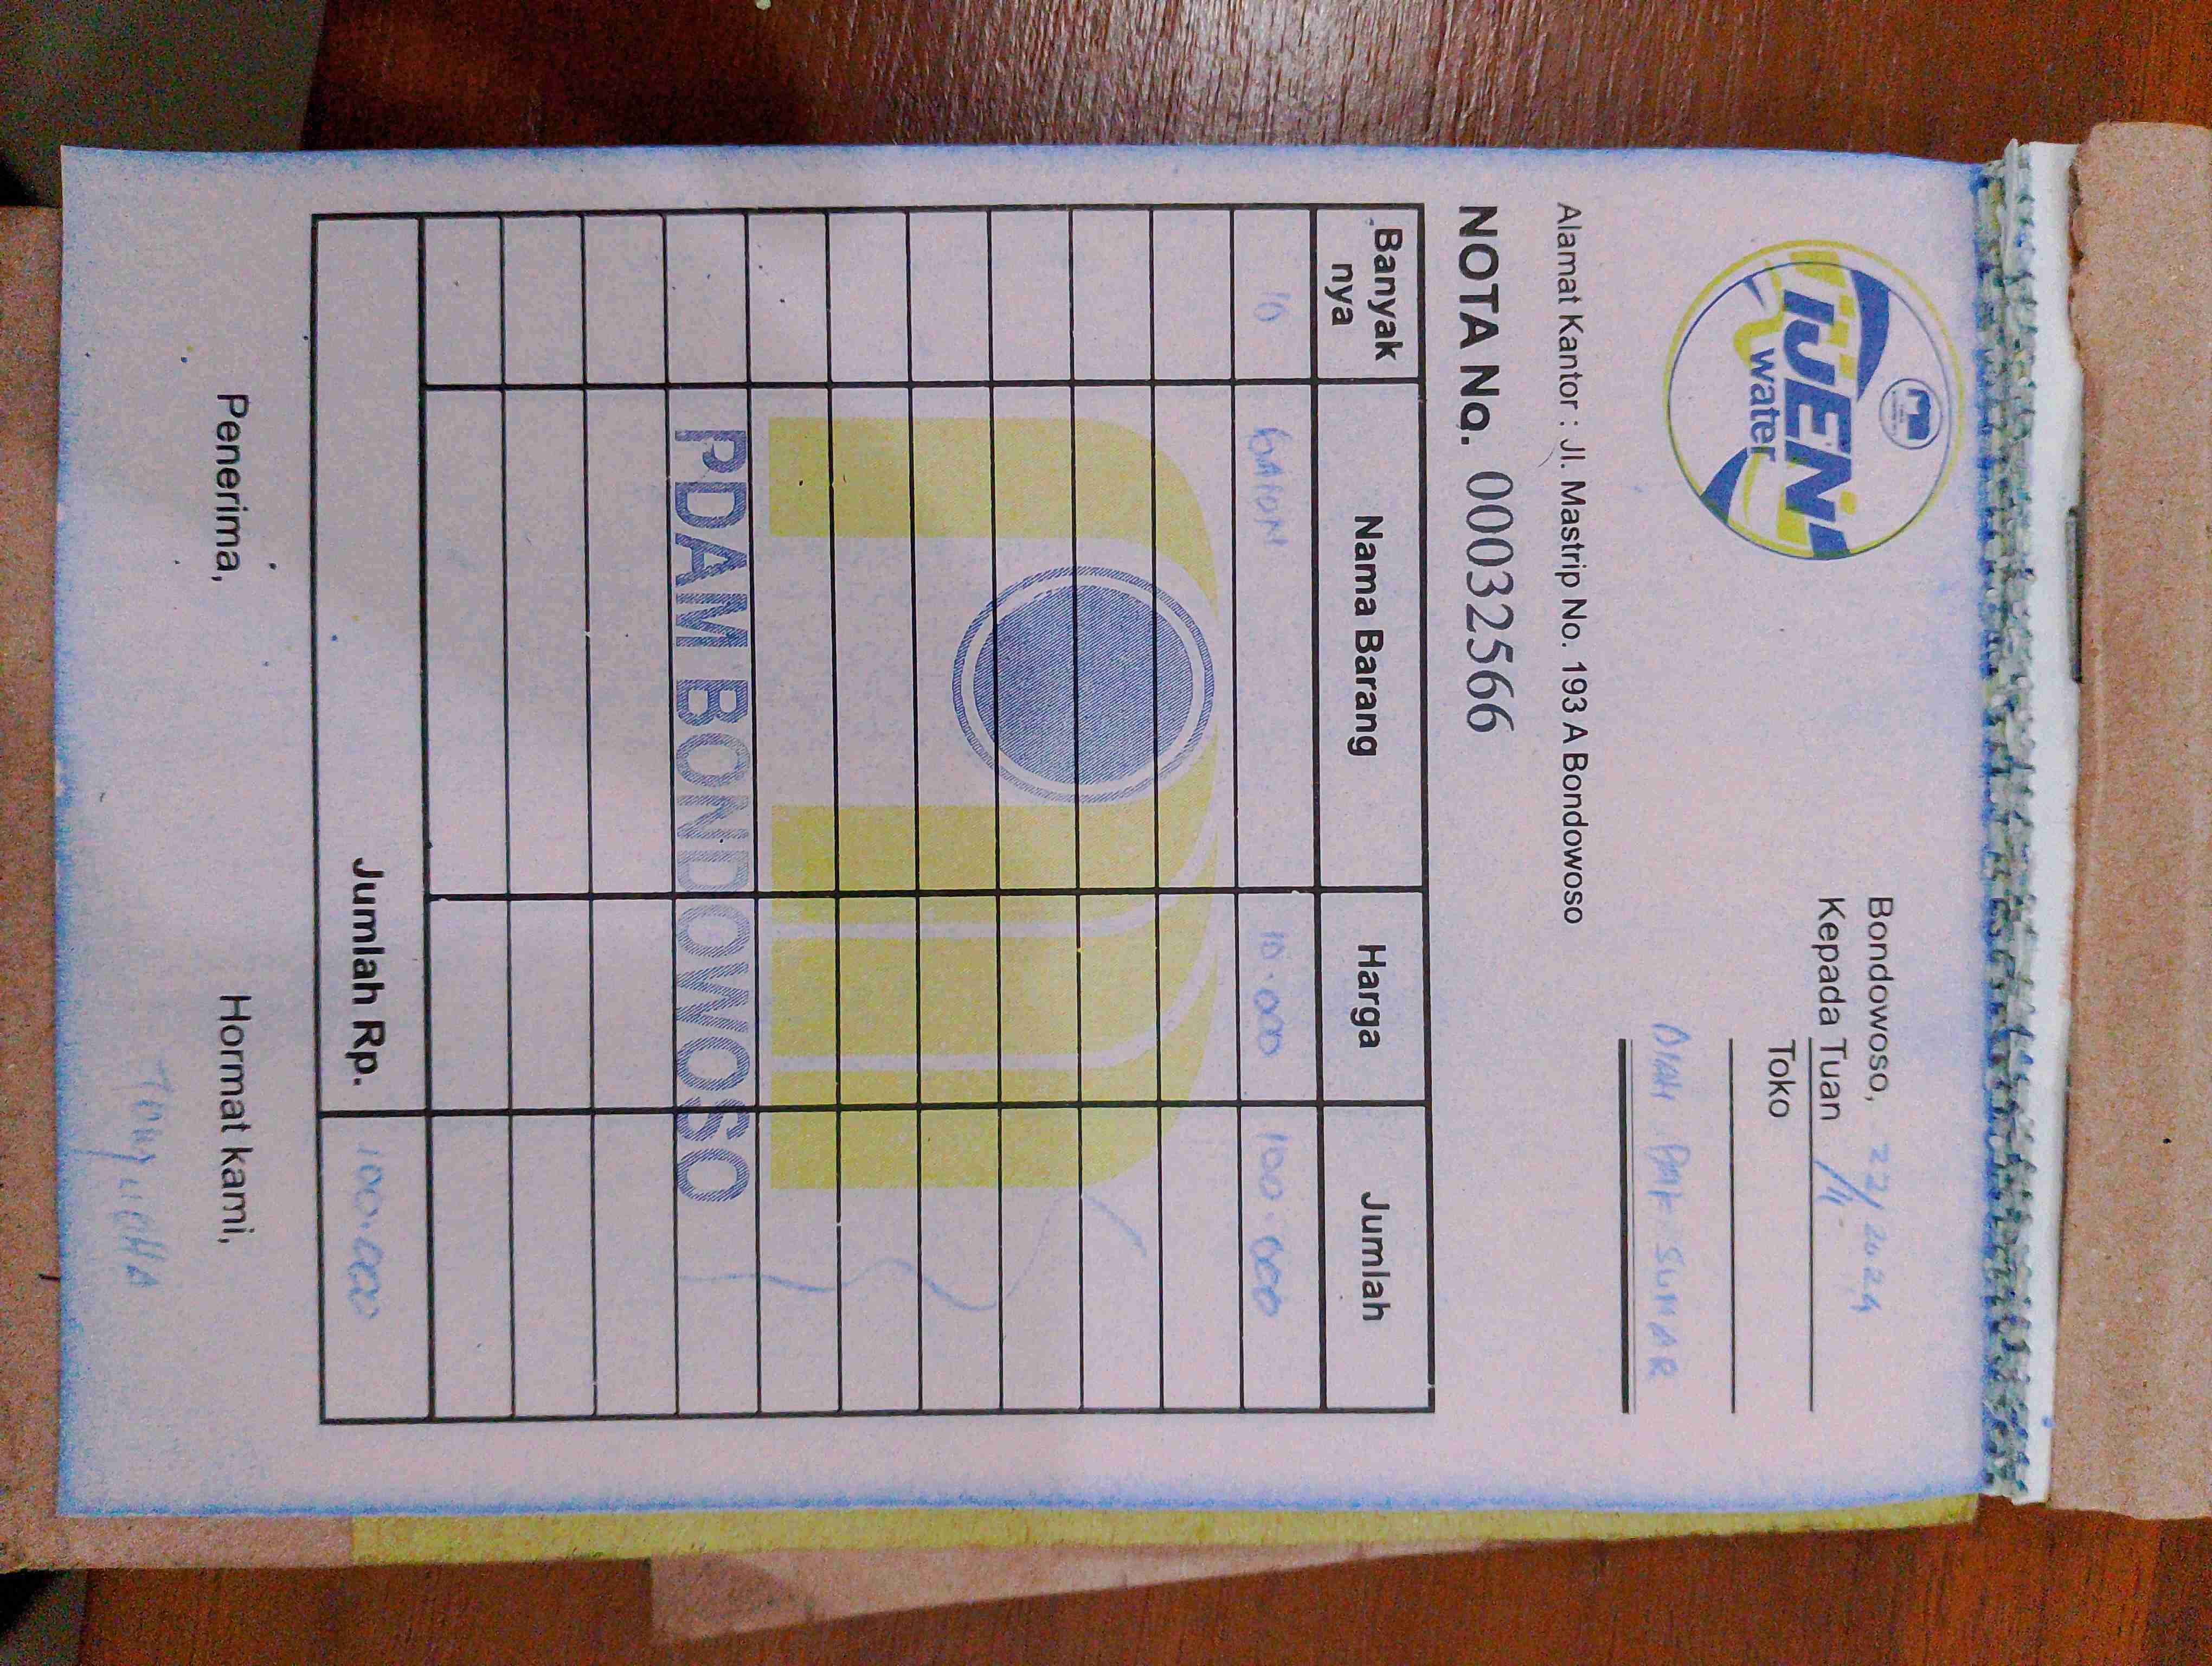 IJEN
water
Bondowoso, 22/11 2024
Kepada Tuan
Toko
PAK SUMAR
Alamat Kantor : Jl. Mastrip No. 193 A Bondowoso
NOTA No. 00032566
Banyak nya Nama Barang Harga Jumlah
10 GALON 10.000 100.000
PDAM BONDOWOSO
Jumlah Rp. 100.000
Penerima, Hormat kami,